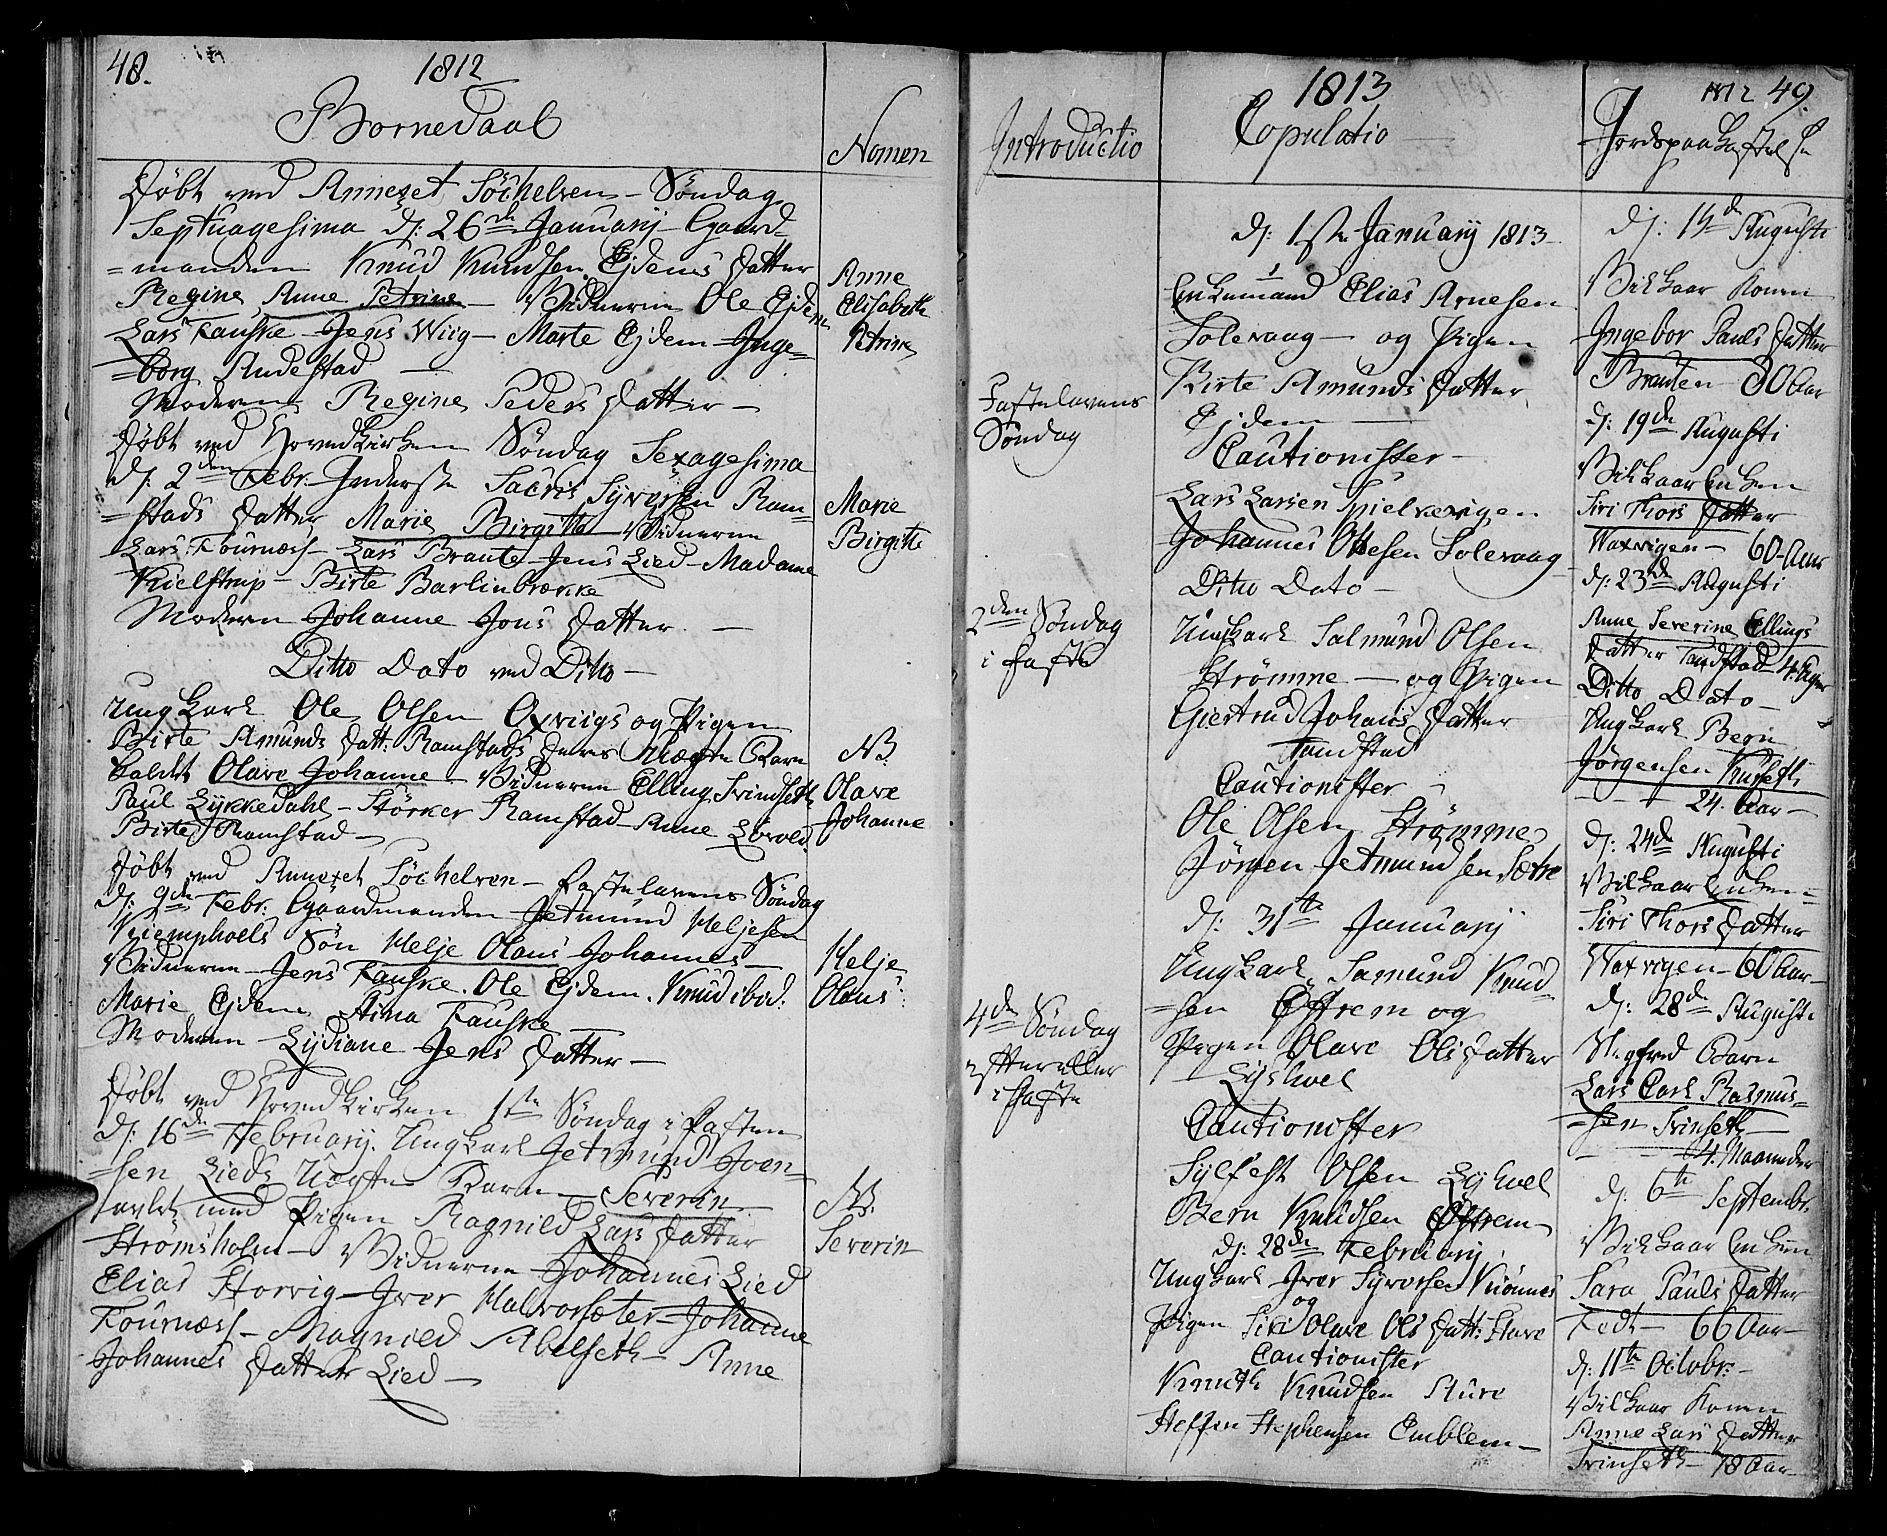 48.
1812
Bornedaab
Nomen
Døbt ved Annexet Söchelven - Søndag
Septuagesima d: 26de Januarij Gaard-
=manden Knud Knudsen Ejdems Datter
Regine Anne Petrine - Vidnerne Ole Ejdem
Lars Fauske Jens Wiig - Marte Ejdem Inge-
=borg Rudestad
Moderen Regine Peders Datter -
Anne
Elisabeth
Petrine
Døbt ved Hovedkirken Søndag Sexagesima
d: 2den Febr. Inderste Sacris Syversen Ram-
=stads Datter Marie Birgitte Vidnerne
Lars Fournæss - Lars Braute - Jens Lied - Madame
Kielstrup - Birte Barlinbrække
Moderen Johanne Jons Datter -
Marie
Birgitte
Ditto Dato ved Ditto -
Ungkarl Ole Olsen Oxviigs og Pigen
Birte Amunds Datt: Ramstads deres Uægte Barn
kaldet Olave Johanne - Vidnerne Elling Svindseth
Paul Lykkedahl - Størker Ramstad - Anne Løvold
Birte Ramstad -
NB.
Olave
Johanne
Døbt ved Annexet Söchelven - fastelavens Søndag
d: 9de Febr. Gaardmanden Jetmund Heljesen
Kiemphoels Søn Helje Olaus Johannes -
Vidnerne - Jens Fauske. Ole Ejdem. Knud ibid.
Marie Ejdem Stina Fauske
Moderen Lydiane Jens Datter -
Helje
Olaus
Døbt ved Hovedkirken 1ste Søndag i fasten
d: 16de Februarij. Ungkarl Jetmund Joen-
=sen Lieds Uægte Barn Severin
avlet med Pigen Ragnild Lars Datter
Strömsholm - Vidnerne Johannes Lied
Elias Storvig - Iver Halvorsæter - Johanne
Fournæss - Magnild Abelseth - Anne
Johannes Datter Lied -
NB.
Severin
Introductio
Fastelavens
Søndag
2den Søndag
i faste
4de Søndag
i faste
1813
Copulatio
d: 1ste Januarij 1813
Enkemand Elias Arnesen
Solevaag - og Pigen
Birte Amunds Datter
Ejdem
Cautionister -
Lars Larsen
Johannes Olsesen Solevaag
Ditto Dato -
Ungkarl Salmund Olsen
Strömme - og Pigen
Giertrud Johans Datter
Tandstad
Cautionister
Ole Olsen Strømme
Jørgen Jetmundsen Sætre
d: 31te Januarij
Ungkarl Samund Knud-
=sen Øfrem og
Pigen Olave Ols Datter
Lyshoel
Cautionister
Sylfest Olsen Lyshoel
Bern Knudsen Øfrem
d: 28de Februarij
Ungkarl Iver Syversen Kiönnes
og
Pigen Siri Olave Ols Datt: Stave
Cautionister
Knuth Knudsen Sture
Steffen Stephensen Emblem -
1812 49.
Jordspaakastelse
d: 15de Augusti
Vilkaar Konen
Ingebor Pauls Datter
Brauten - 80 Aar
d: 19de Augusti
Vilkaar Enken
Siri Thors Datter
Waxvigen - 60 - Aar
d: 23de Augusti
Anne Severine Ellings
Datter Tandstad - 4. Uger
Ditto Dato -
Ungkarl Bern
Jørgensen Kurseth
- - - 24. Aar -
d: 24de Augusti
Vilkaar Enken =
Siri Thors Datter
Waxvigen - 60 Aar -
d: 28de Augusti
Barn
Lars Carl Rasmus-
=sen Svinseth
- - 4. Maaneder
d: 6te Septembr.
Vilkaar Enken
Sara Pauls Datter
Fedt - 66 Aar -
d: 11te Octobr: -
Vilkaar Konen
Anne Lars Datter
Svinseth - 78 Aar -